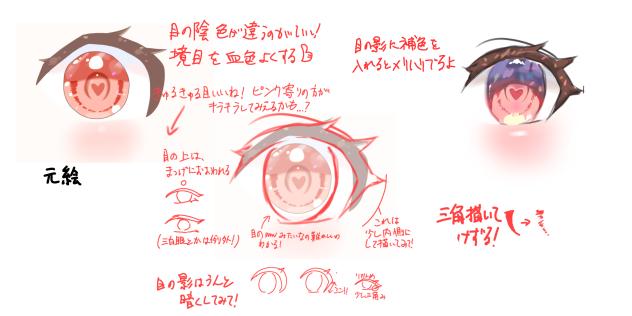 目の陰 色が違う方がいい!
境目を血色よくする
目の影に補色を
入れるとメリハリでるよ
きゅるきゅる目いいね! ピンク寄りの方が
キラキラしてみえるかも…?
目の上は、
まつげにおおわれる
(三白眼とかは例外!)
元絵
わかる!
これは
少し内側に
して描いてみて!
三角描いて
けずる!
目の影はうんと
暗くしてみて!